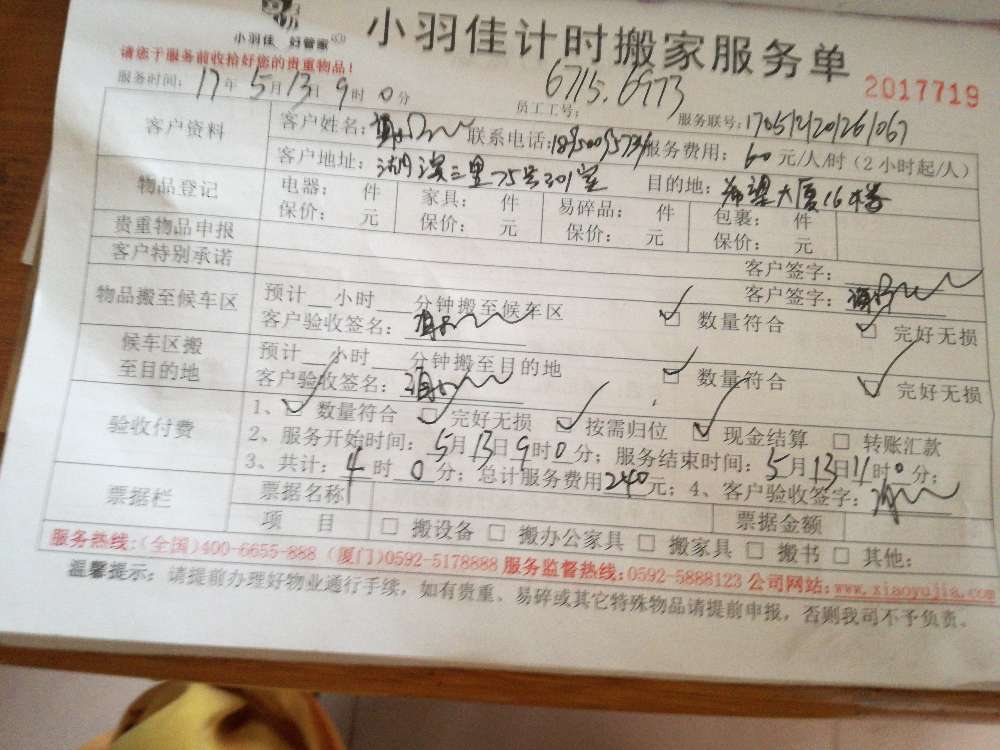 小羽佳 好管家
小羽佳计时搬家服务单
请您于服务前收拾好您的贵重物品！
2017719
服务时间：17年5月13日9时0分 员工工号：6715.6973 服务联号：1705121201261067
客户资料 客户姓名： 联系电话： 服务费用：60元/人/时（2小时起/人）
客户地址：湖滨三里75号301室 目的地：希望大厦16楼
物品登记 电器： 件 家具： 件 易碎品： 件 包裹： 件
贵重物品申报 保价： 元 保价： 元 保价： 元 保价： 元
客户签字：
客户特别承诺 客户签字：
物品搬至候车区 预计__小时__分钟搬至候车区 数量符合 完好无损
客户验收签名：
候车区搬至目的地 预计__小时__分钟搬至目的地 数量符合 完好无损
客户验收签名：
验收付费 1、 数量符合 完好无损 按需归位 现金结算 转账汇款
2、服务开始时间：5月13日9时0分；服务结束时间：5月13日11时0分；
3、共计：4时0分；总计服务费用240元；4、客户验收签字：
票据栏 票据名称 票据金额
项目 搬设备 搬办公家具 搬家具 搬书 其他：
服务热线：(全国)400-6655-888 (厦门)0592-5178888 服务监督热线：0592-5888123 公司网站：www.xiaoyujia.com
温馨提示：请提前办理好物业通行手续，如有贵重、易碎或其它特殊物品请提前申报，否则我司不予负责。